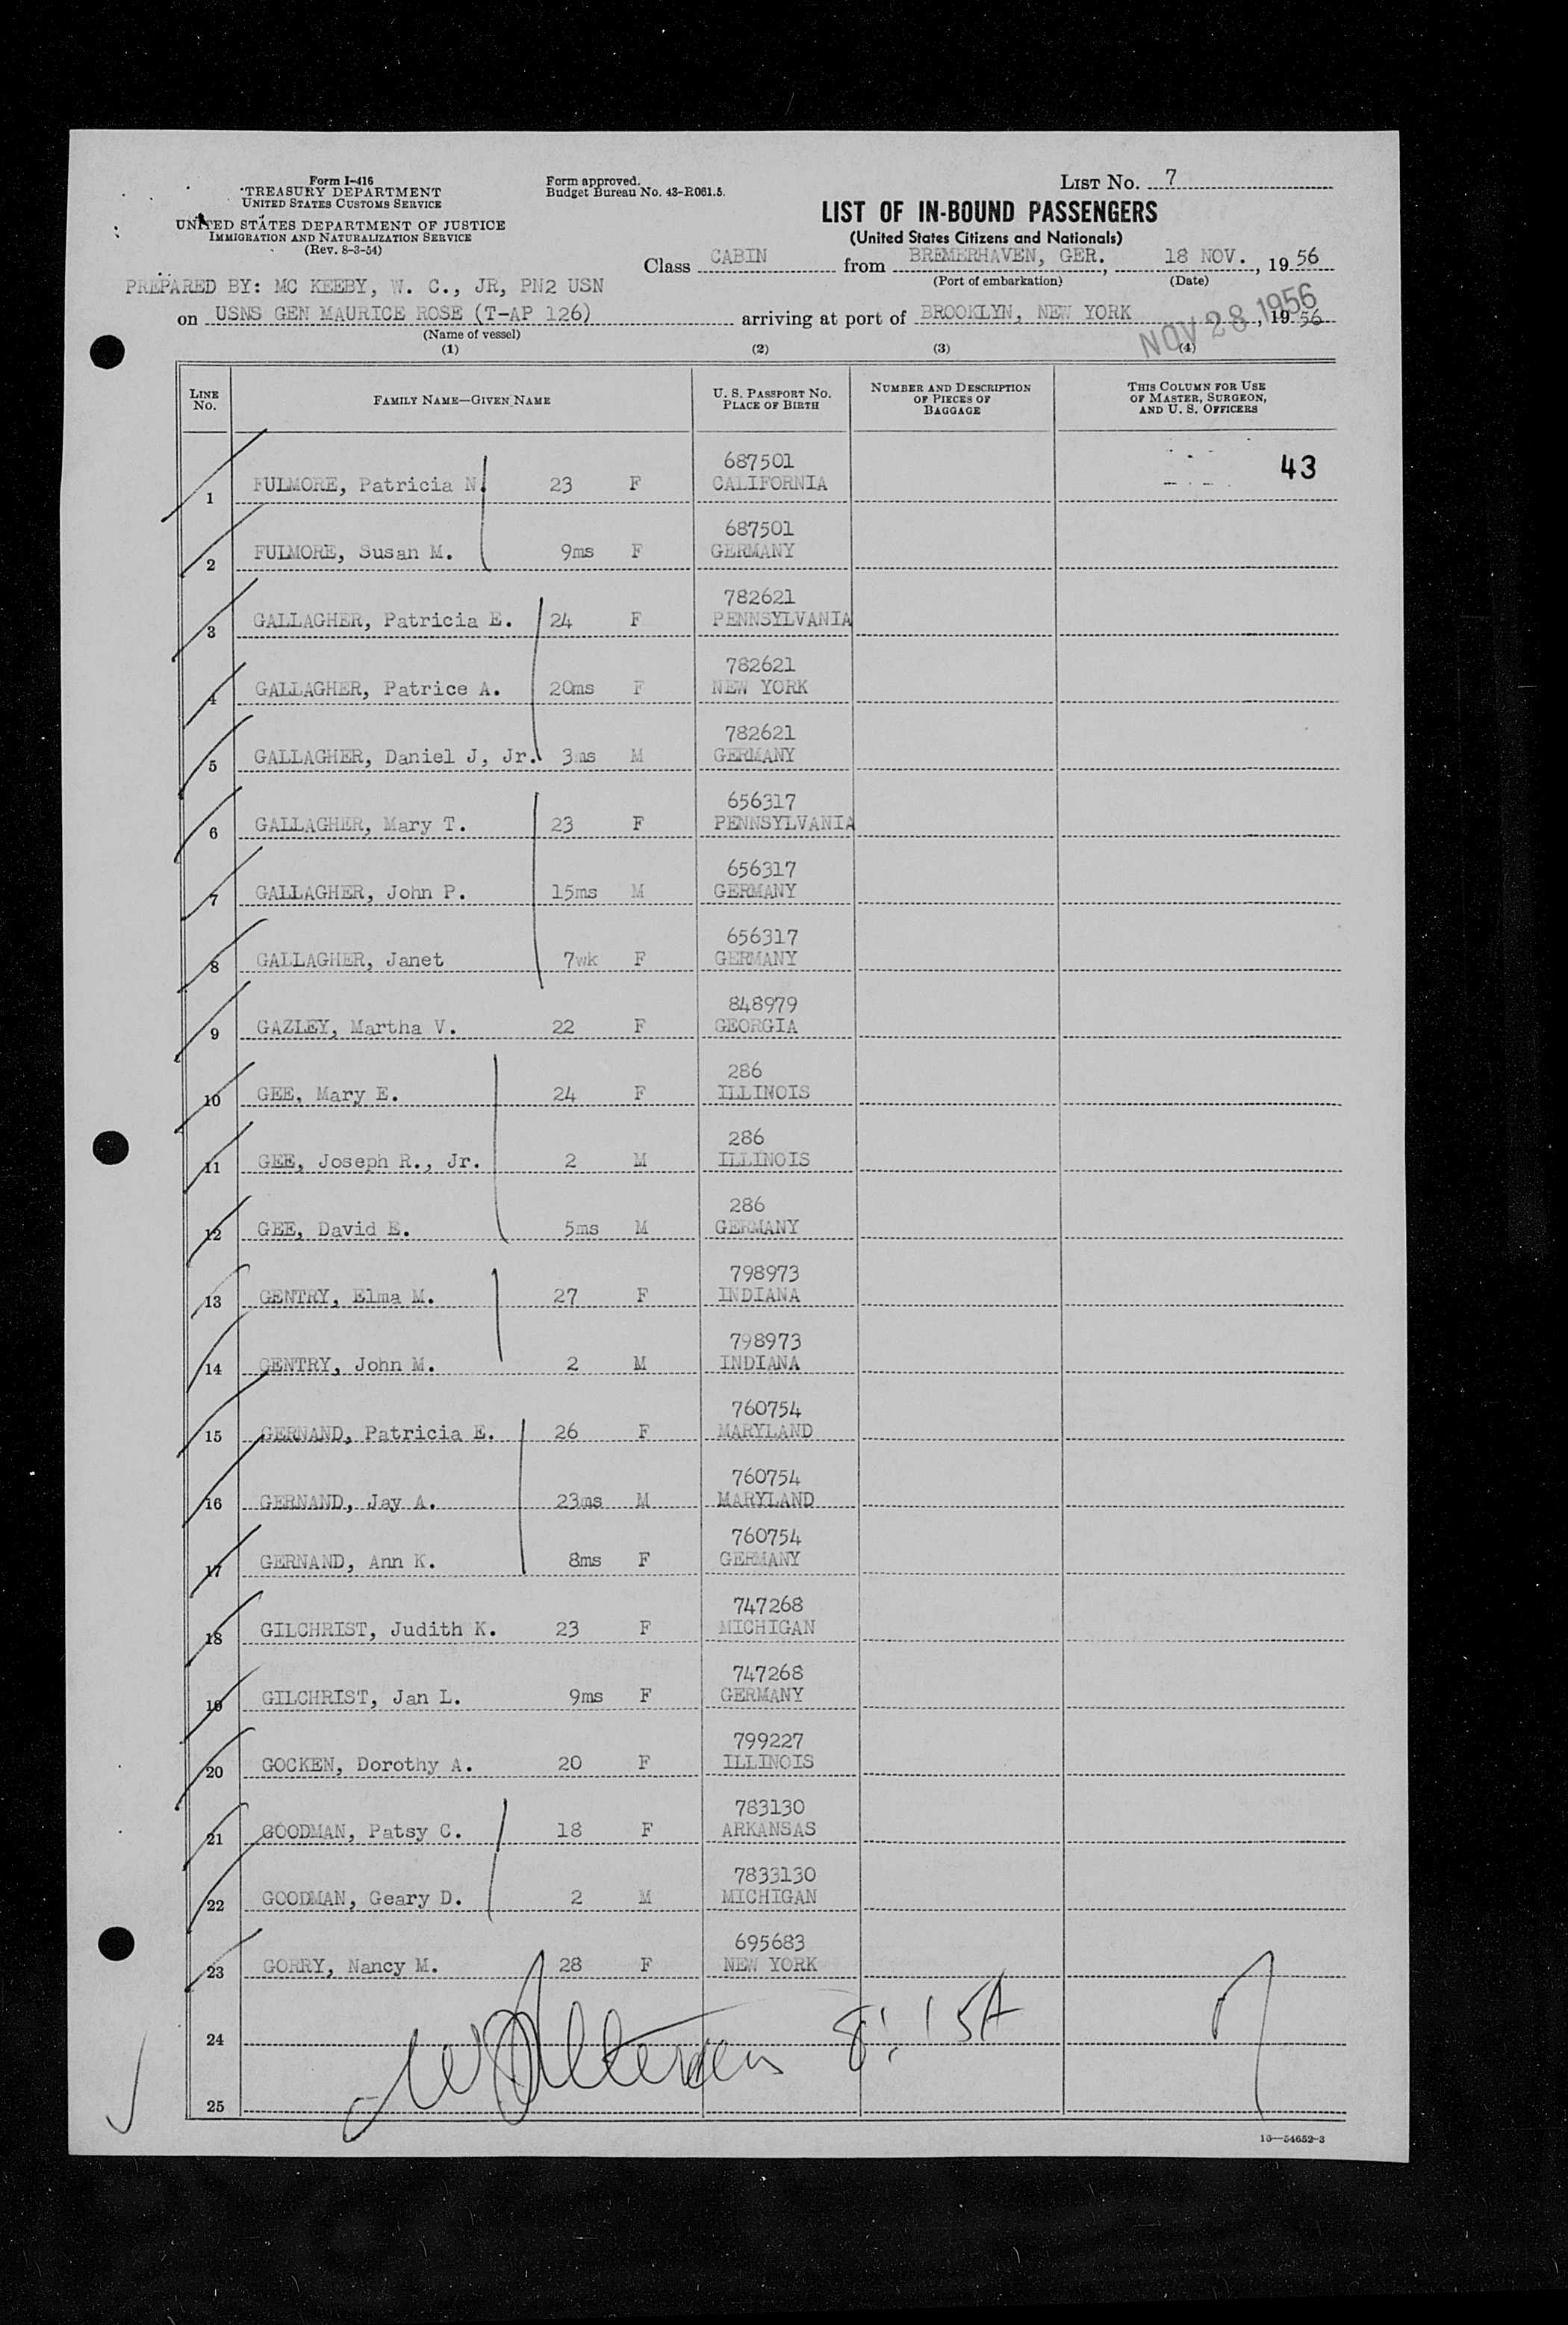 Form I-416
TREASURY DEPARTMENT
UNITED STATES CUSTOMS SERVICE
UNITED STATES DEPARTMENT OF JUSTICE
IMMIGRATION AND NATURALIZATION SERVICE
(Rev. 8-3-54)
Form approved.
Budget Bureau No. 43-R061.5.
LIST No. 7
LIST OF IN-BOUND PASSENGERS
(United States Citizens and Nationals)
Class CABIN from BREMERHAVEN, GER., 18 NOV., 1956
(Port of embarkation) (Date)
PREPARED BY: MC KEEBY, W. C., JR, PN2 USN
on USNS GEN MAURICE ROSE (T-AP 126) arriving at port of BROOKLYN, NEW YORK, 1956
NOV 28 1956
(Name of vessel)
(1) (2) (3) (4)
LINE No. FAMILY NAME—GIVEN NAME U. S. PASSPORT No. PLACE OF BIRTH NUMBER AND DESCRIPTION OF PIECES OF BAGGAGE THIS COLUMN FOR USE OF MASTER, SURGEON, AND U. S. OFFICERS
687501 43
1 FULMORE, Patricia N. 23 F CALIFORNIA
687501
2 FULMORE, Susan M. 9ms F GERMANY
782621
3 GALLAGHER, Patricia E. 24 F PENNSYLVANIA
782621
4 GALLAGHER, Patrice A. 20ms F NEW YORK
782621
5 GALLAGHER, Daniel J, Jr. 3ms M GERMANY
656317
6 GALLAGHER, Mary T. 23 F PENNSYLVANIA
656317
7 GALLAGHER, John P. 15ms M GERMANY
656317
8 GALLAGHER, Janet 7wk F GERMANY
848979
9 GAZLEY, Martha V. 22 F GEORGIA
286
10 GEE, Mary E. 24 F ILLINOIS
286
11 GEE, Joseph R., Jr. 2 M ILLINOIS
286
12 GEE, David E. 5ms M GERMANY
798973
13 GENTRY, Elma M. 27 F INDIANA
798973
14 GENTRY, John M. 2 M INDIANA
760754
15 GERNAND, Patricia E. 26 F MARYLAND
760754
16 GERNAND, Jay A. 23ms M MARYLAND
760754
17 GERNAND, Ann K. 8ms F GERMANY
747268
18 GILCHRIST, Judith K. 23 F MICHIGAN
747268
19 GILCHRIST, Jan L. 9ms F GERMANY
799227
20 GOCKEN, Dorothy A. 20 F ILLINOIS
783130
21 GOODMAN, Patsy C. 18 F ARKANSAS
7833130
22 GOODMAN, Geary D. 2 M MICHIGAN
695683
23 GORRY, Nancy M. 28 F NEW YORK
24
8:15A
25
16—54652-3